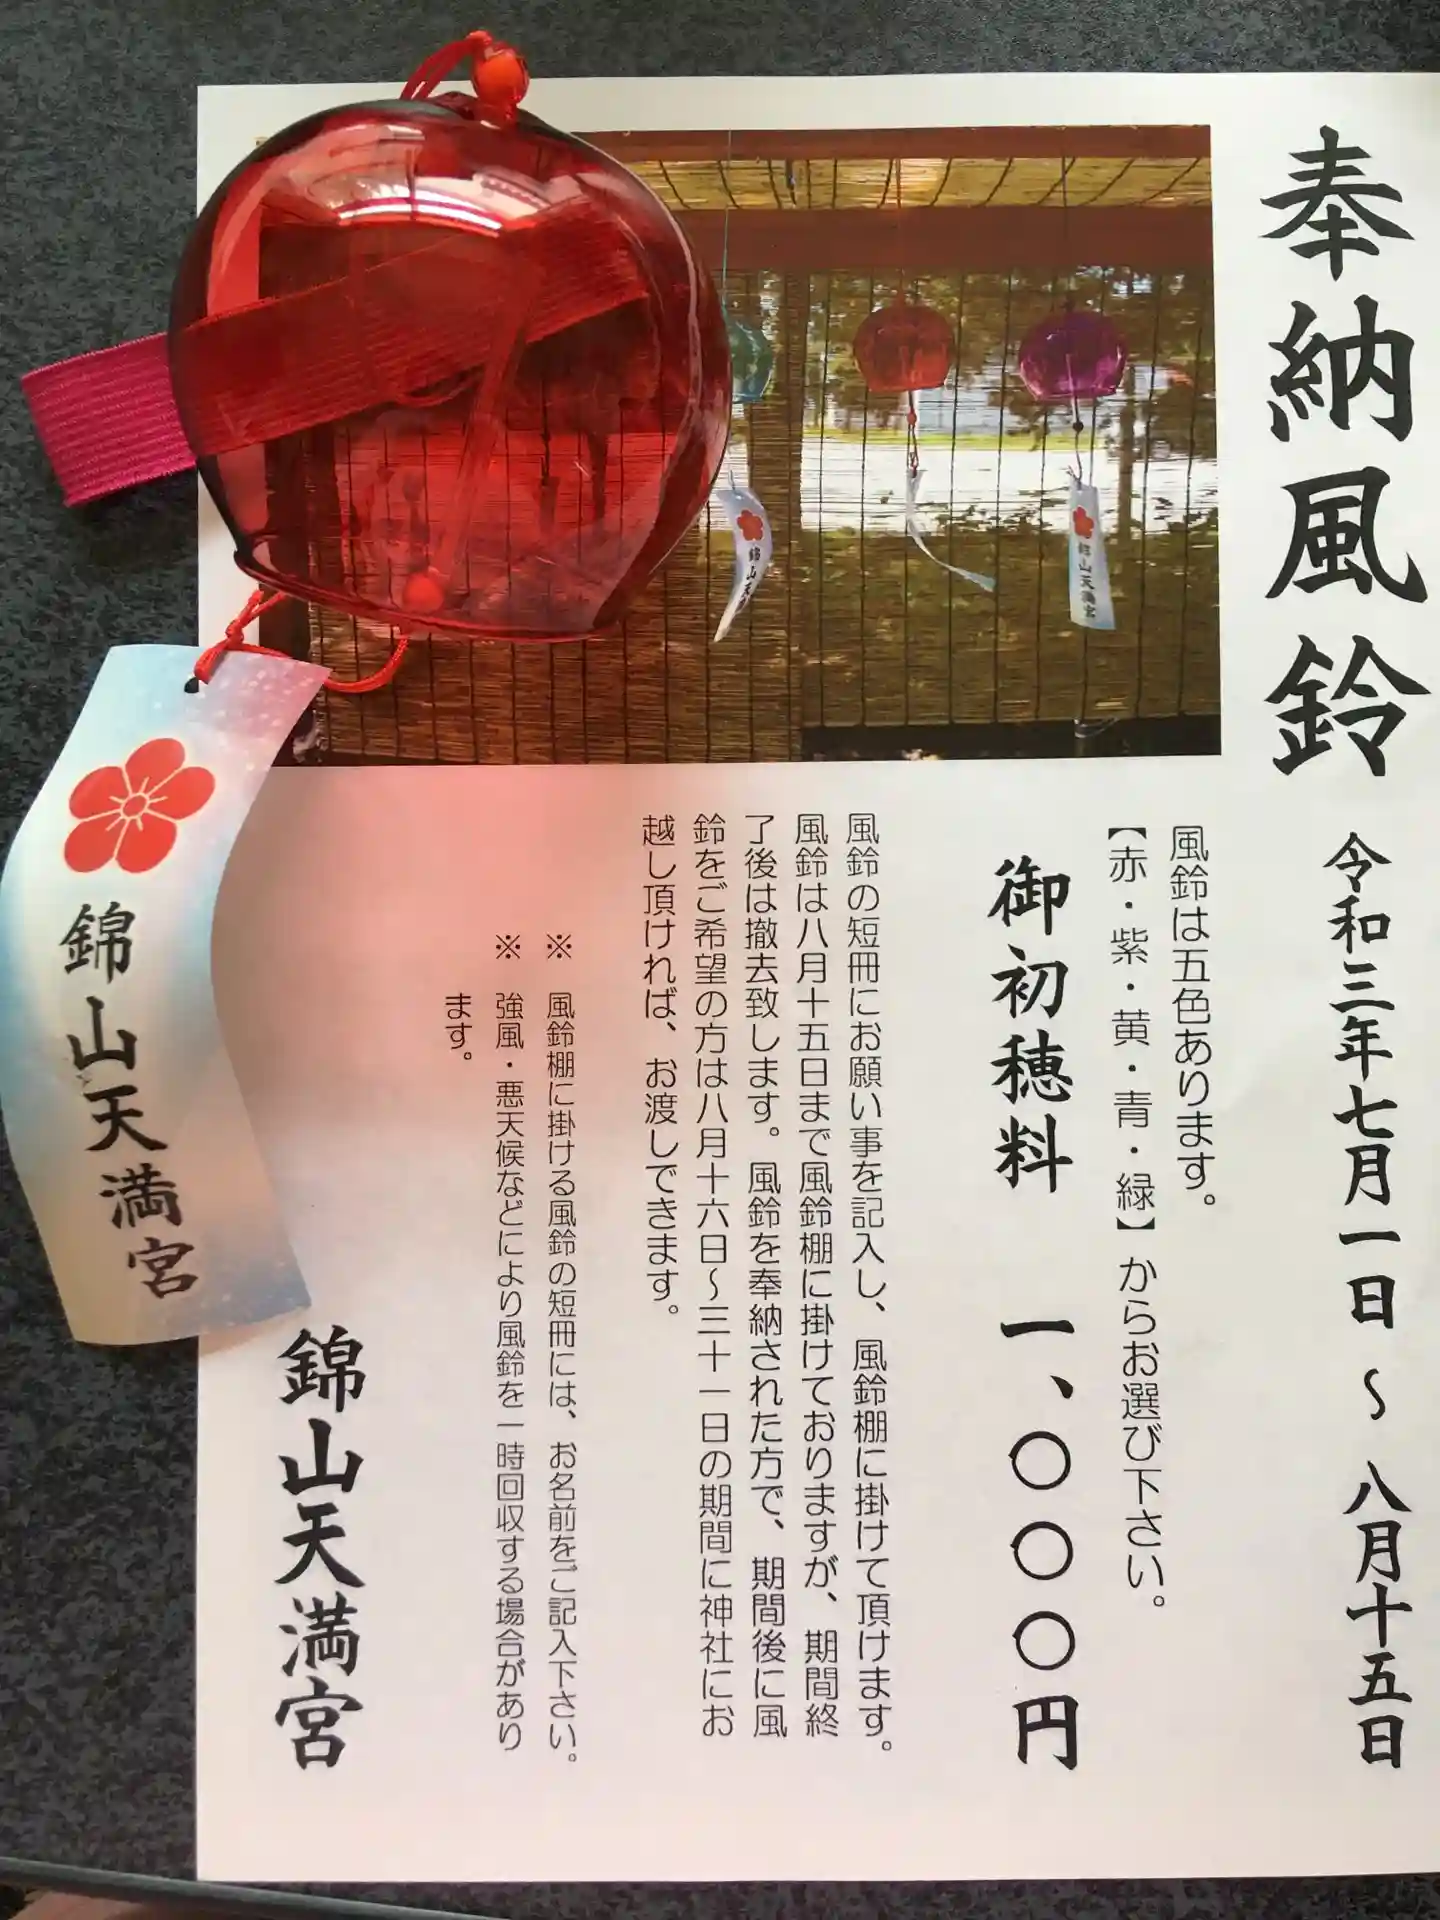 奉納風鈴 令和三年七月一日 ～ 八月十五日
風鈴は五色あります。
【赤・紫・黄・青・緑】からお選び下さい。
御初穂料 一、〇〇〇円
風鈴の短冊にお願い事を記入し、風鈴棚に掛けて頂けます。
風鈴は八月十五日まで風鈴棚に掛けておりますが、期間終
了後は撤去致します。風鈴を奉納された方で、期間後に風
鈴をご希望の方は八月十六日～三十一日の期間に神社にお
越し頂ければ、お渡しできます。
※ 風鈴棚に掛ける風鈴の短冊には、お名前をご記入下さい。
※ 強風・悪天候などにより風鈴を一時回収する場合があり
ます。
錦山天満宮
錦山天満宮
錦山天満宮
錦山天